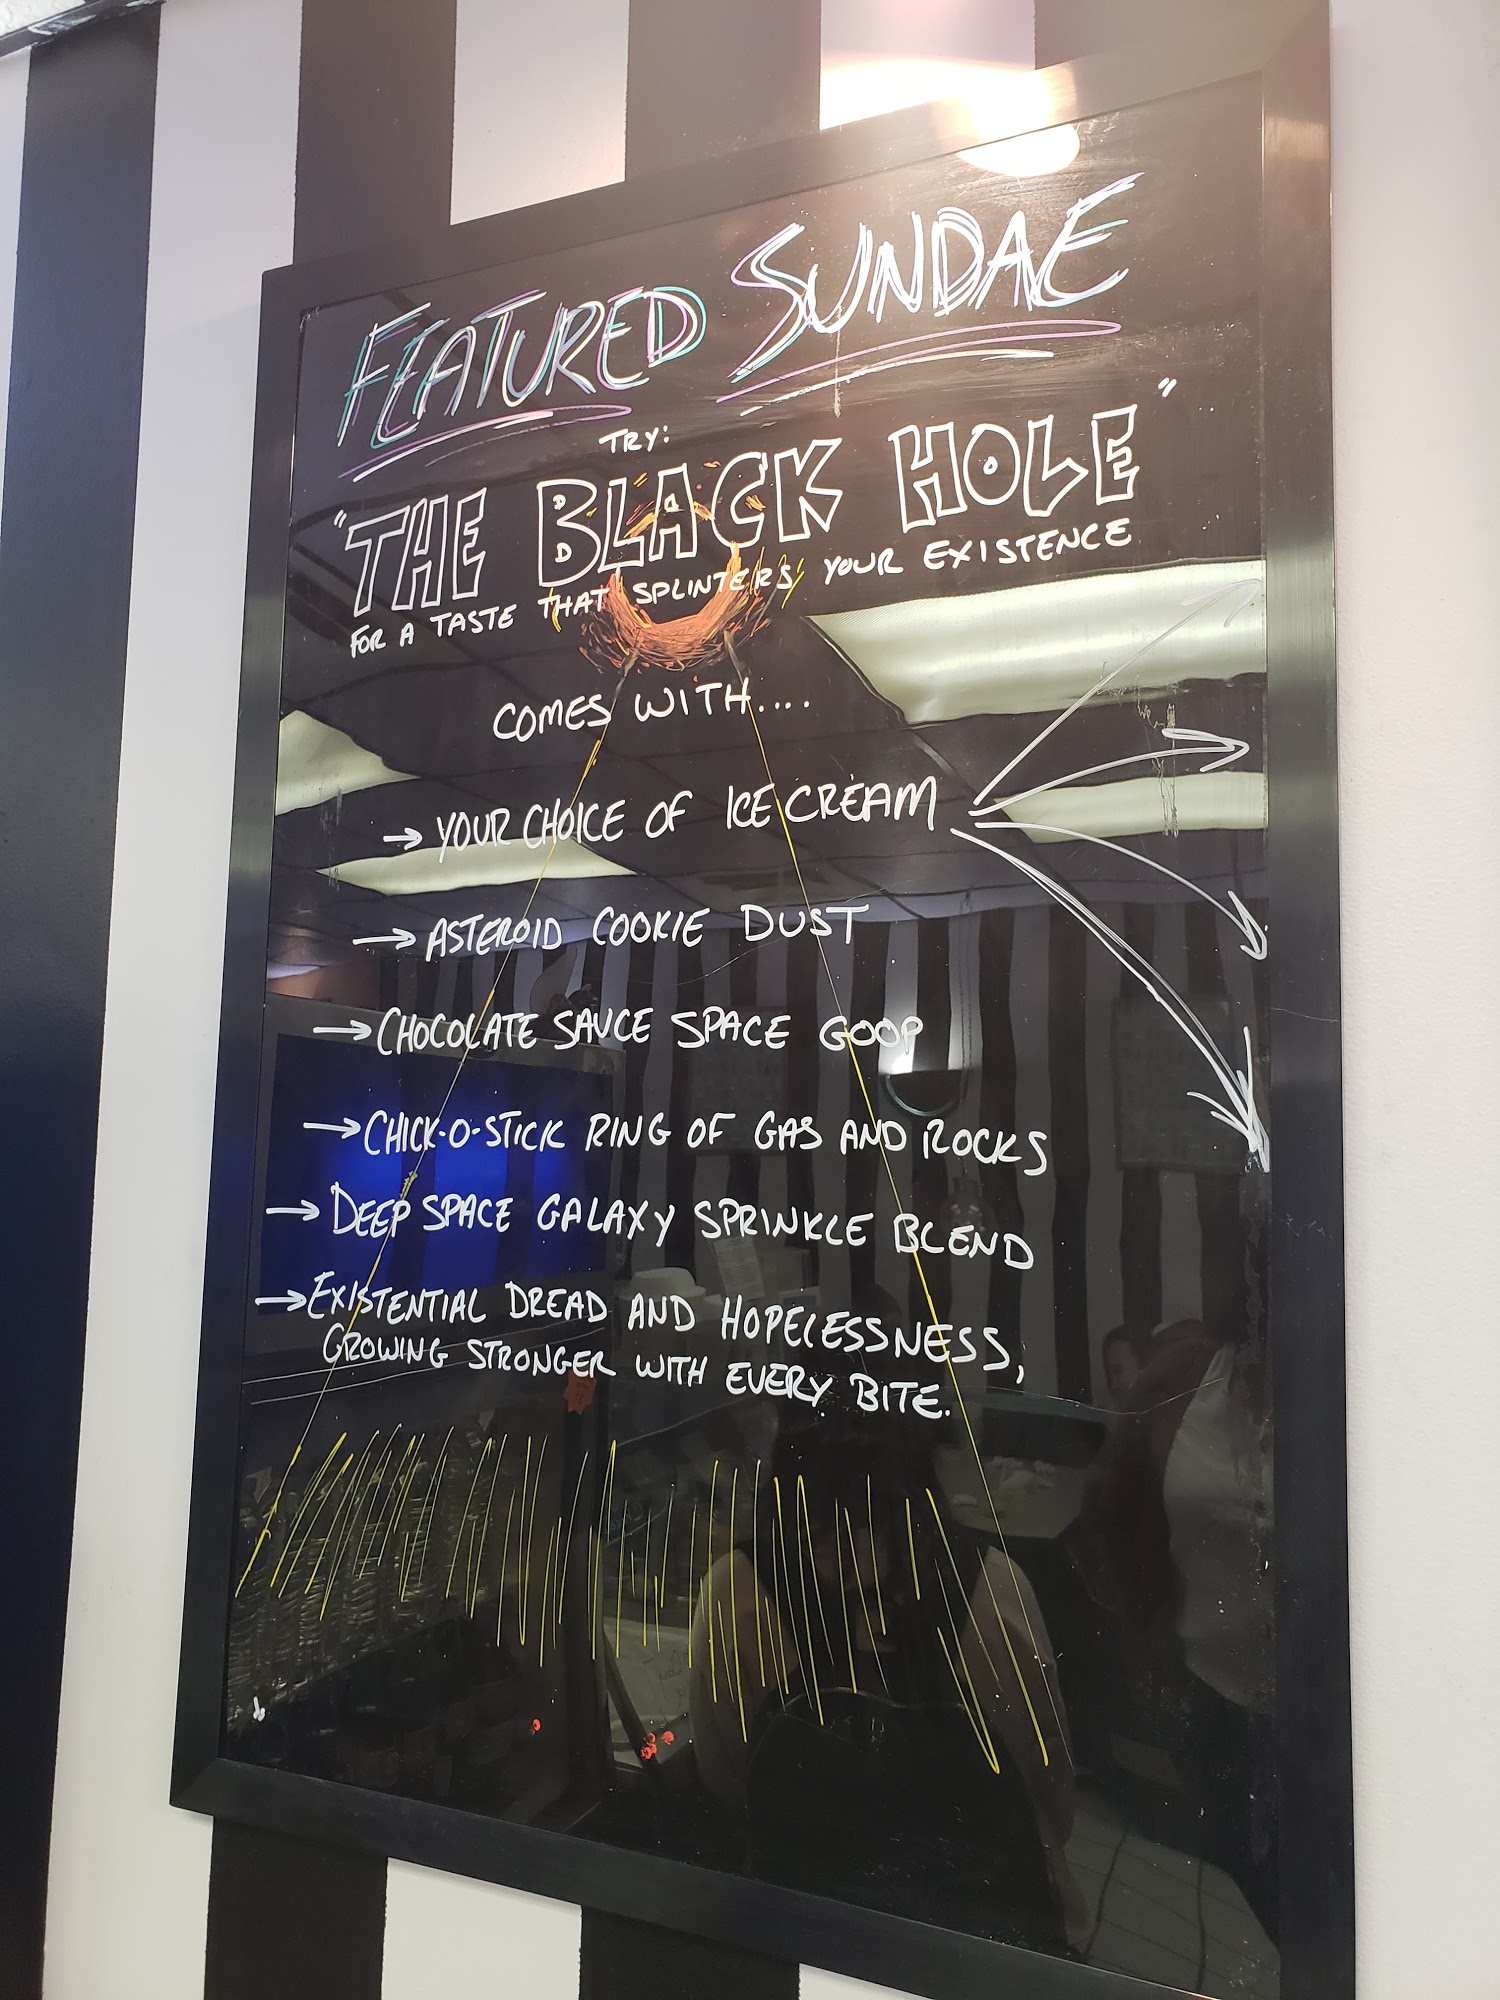 FEATURED SUNDAE
TRY:
"THE BLACK HOLE"
FOR A TASTE THAT SPLINTERS YOUR EXISTENCE
COMES WITH....
→ YOUR CHOICE OF ICE CREAM
→ ASTEROID COOKIE DUST
→ CHOCOLATE SAUCE SPACE GOOP
→ CHICK-O-STICK RING OF GAS AND ROCKS
→ DEEP SPACE GALAXY SPRINKLE BLEND
→ EXISTENTIAL DREAD AND HOPELESSNESS,
GROWING STRONGER WITH EVERY BITE.